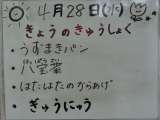 4月28日(火)
きょうのきゅうしょく
・うずまきパン
・八宝菜
・はたはたのからあげ
・ぎゅうにゅう